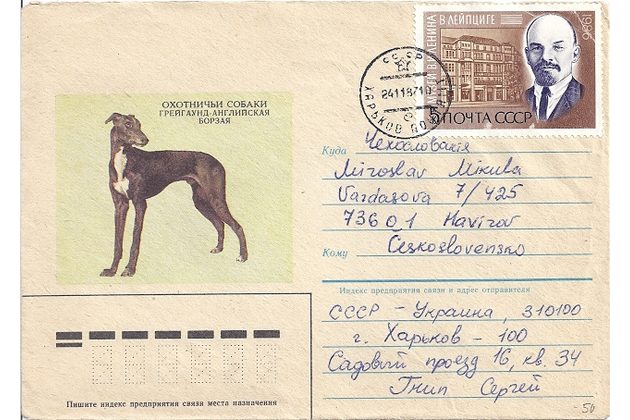 ОХОТНИЧЬИ СОБАКИ
ГРЕЙГАУНД-АНГЛИЙСКАЯ
БОРЗАЯ
В.И.ЛЕНИНА
В ЛЕЙПЦИГЕ
1986
5 ПОЧТА СССР
СССР
24118710
ХАРЬКОВ
Чехословакия
Куда
Miroslav Mikula
Vardasova 7/425
73601 Havířov
Кому
Československo
Индекс предприятия связи и адрес отправителя
СССР - Украина, 310100
г. Харьков - 100
Садовый проезд 16, кв. 34
Гнип Сергей
Пишите индекс предприятия связи места назначения
50